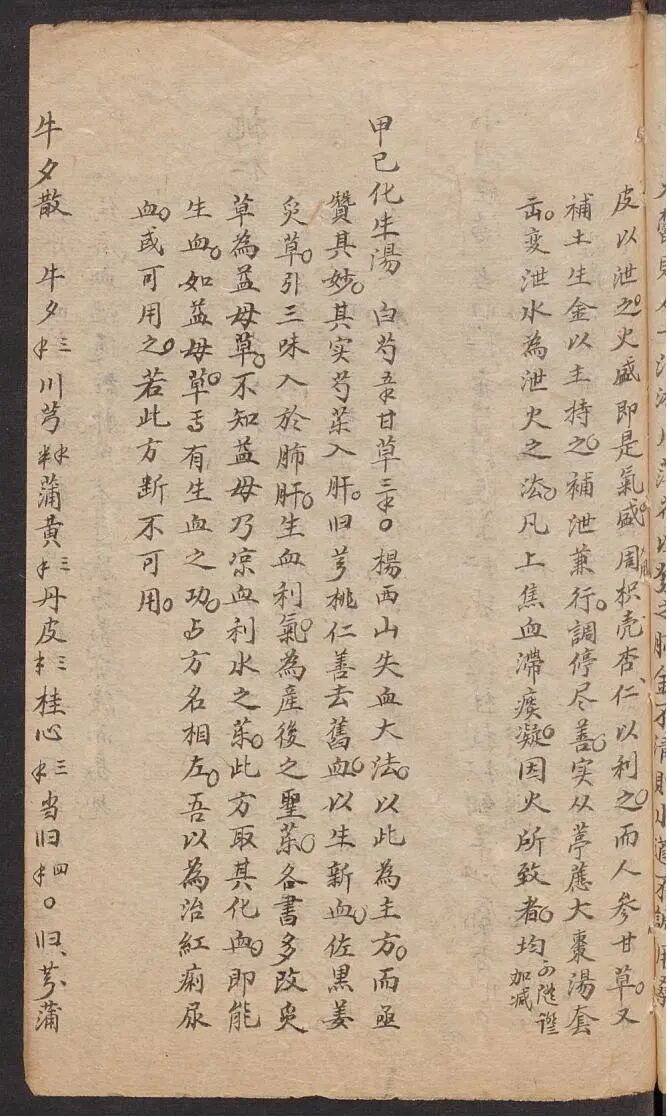 皮以泄之火盛即是氣盛周枳壳杏仁以利之而人参甘草又
補土生金以主持之補泄兼行調停尽善实从葶藶大棗湯套
击变泄水為泄火之法凡上焦血滯痰凝因火所致者均可隨証加减
甲已化生湯 白芍 甘草 楊西山失血大法以此為主方而亟
贊其妙其实芍藥入肝归芎桃仁善去舊血以生新血佐黑姜
炙草引三味入於肺肝生血利氣為産後之聖藥各書多改炙
草為益母草不知益母乃凉血利水之藥此方取其化血即能
生血如益母草焉有生血之功占方名相左吾以為治紅痢尿
血或可用之若此方断不可用
牛夕散 牛夕三 川芎 蒲黄三 丹皮三 桂心三 当归四 归芎蒲